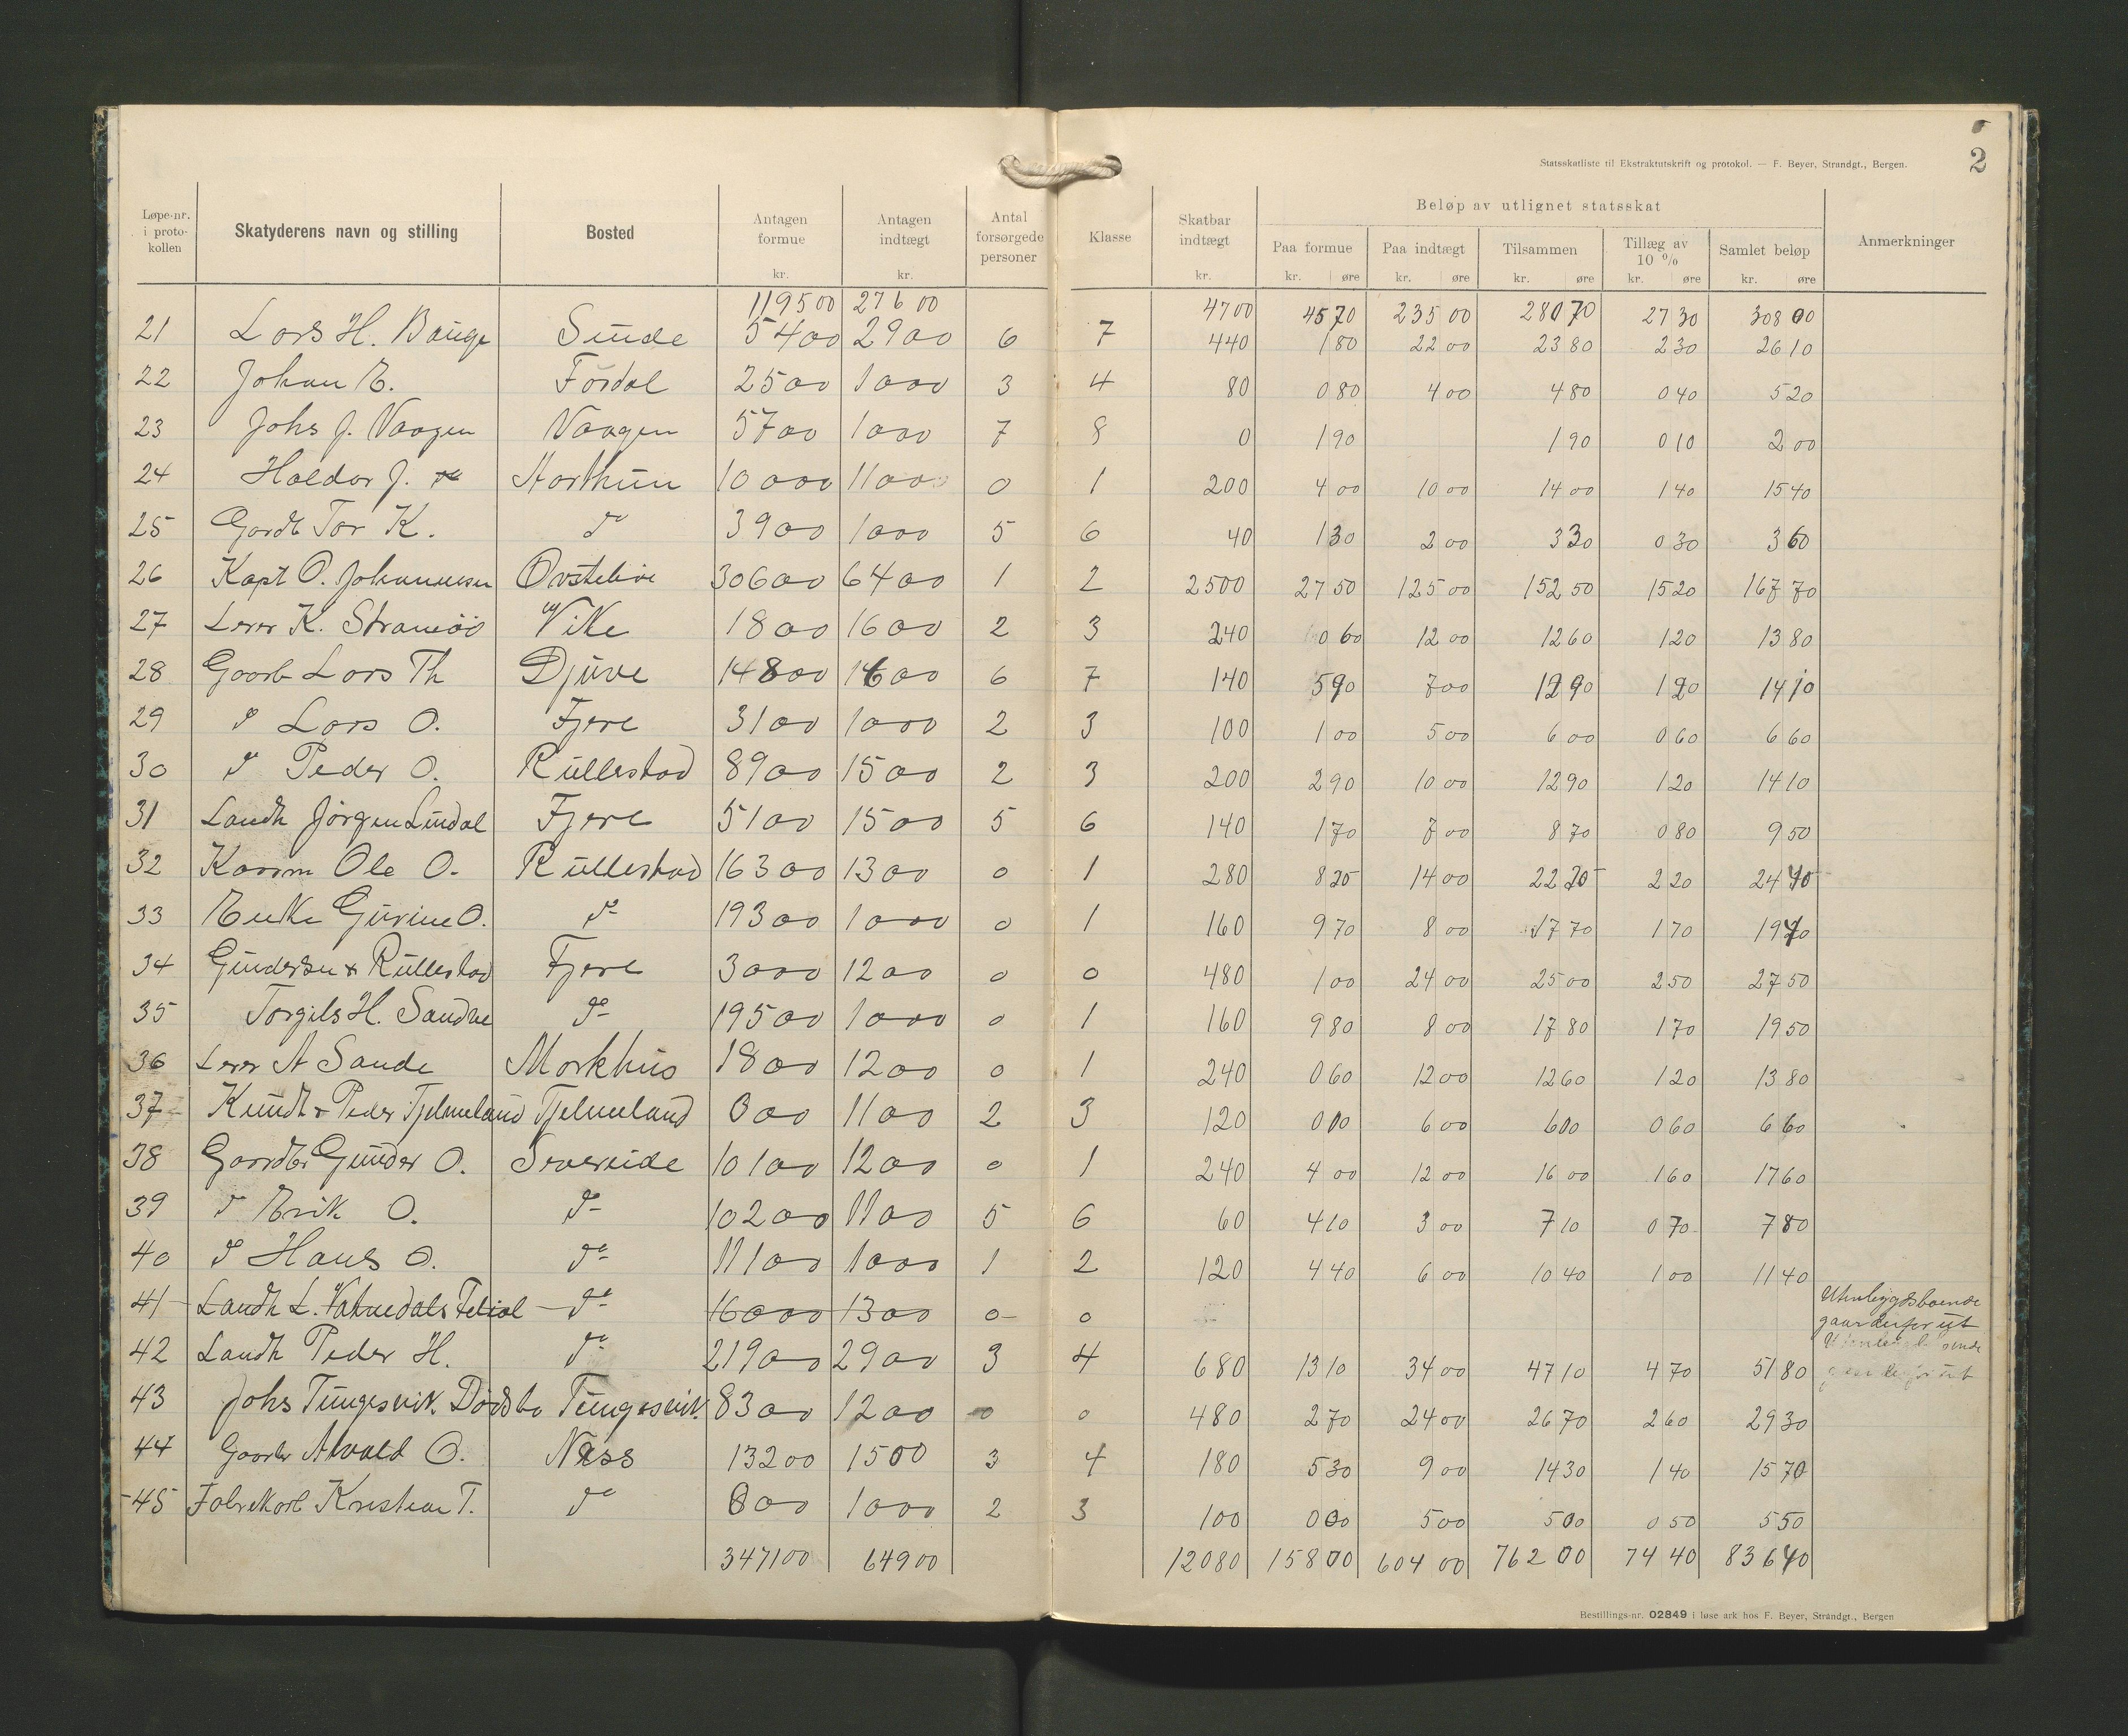 2
Statsskatliste til Ekstraktutskrift og protokol. — F. Beyer, Strandgt., Bergen.
Løpe-nr. i proto-kollen | Skatyderens navn og stilling | Bosted | Antagen formue kr. | Antagen indtægt kr. | Antal forsørgede personer | Klasse | Skatbar indtægt kr. | Beløp av utlignet statsskat | Paa formue kr. øre | Paa indtægt kr. øre | Tilsammen kr. øre | Tillæg av 10 % kr. øre | Samlet beløp kr. øre | Anmerkninger
119500 27600 4700 45 70 235 00 280 70 27 30 308 00
21 Lars H. Bauge Sunde 5400 2900 6 7 440 1 80 22 00 23 80 2 30 26 10
22 Johan E. Fordal 2500 1000 3 4 80 0 80 4 00 4 80 0 40 5 20
23 Johs J. Vaagen Vaagen 5700 1000 7 8 0 1 90 1 90 0 10 2 00
24 Haldor J. Aarthun 10000 1100 0 1 200 4 00 10 00 14 00 1 40 15 40
25 Gardb Tor K. do 3900 1000 5 6 40 1 30 2 00 3 30 0 30 3 60
26 Kapt O. Johannesen Østebøe 30600 6400 1 2 2500 27 50 125 00 152 50 15 20 167 70
27 Lerer K. Stramøs Vike 1800 1600 2 3 240 0 60 12 00 12 60 1 20 13 80
28 Gaarb Lars Th Djuve 14800 1600 6 7 140 5 90 7 00 12 90 1 20 14 10
29 do Lars O. Fjere 3100 1000 2 3 100 1 00 5 00 6 00 0 60 6 60
30 do Peder O. Rullestad 8900 1500 2 3 200 2 90 10 00 12 90 1 20 14 10
31 Landh Jørgen Lindal Fjere 5100 1500 5 6 140 1 70 7 00 8 70 0 80 9 50
32 Kaarm Ole O. Rullestad 16300 1300 0 1 280 8 20 14 00 22 20 2 20 24 40
33 Enke Gurine O. do 19300 1000 0 1 160 9 70 8 00 17 70 1 70 19 40
34 Gundersen & Rullestad Fjere 3000 1200 0 0 480 1 00 24 00 25 00 2 50 27 50
35 Torgils H. Sandve do 19500 1000 0 1 160 9 80 8 00 17 80 1 70 19 50
36 Lerer A Sande Markhus 1800 1200 0 1 240 0 60 12 00 12 60 1 20 13 80
37 Kundh & Peder Tjelmeland Tjelmeland 000 1100 2 3 120 0 00 6 00 6 00 0 60 6 60
38 Gaardbr Gunder O. Sævereide 10100 1200 0 1 240 4 00 12 00 16 00 1 60 17 60
39 do Erik O. do 10200 1100 5 6 60 4 10 3 00 7 10 0 70 7 80
40 do Hans O. do 11100 1000 1 2 120 4 40 6 00 10 40 1 00 11 40
41 Landh L. Vatnedals Filial do 16000 1300 0 0 Utenbygdsboende
gaar derfor ut
42 Landh Peder H. do 21900 2900 3 4 680 13 10 34 00 47 10 4 70 51 80
43 Johs Tungesvik. Dødsbo Tungesvik. 8300 1200 0 0 480 2 70 24 00 26 70 2 60 29 30
44 Gaarbr Alvald O. Næss 13200 1500 3 4 180 5 30 9 00 14 30 1 40 15 70
45 Fabrikarb Kristian T. do 000 1000 2 3 100 0 00 5 00 5 00 0 50 5 50
347100 64900 12080 158 00 604 00 762 00 74 40 836 40
Bestillings-nr. 02849 i løse ark hos F. Beyer, Strandgt., Bergen